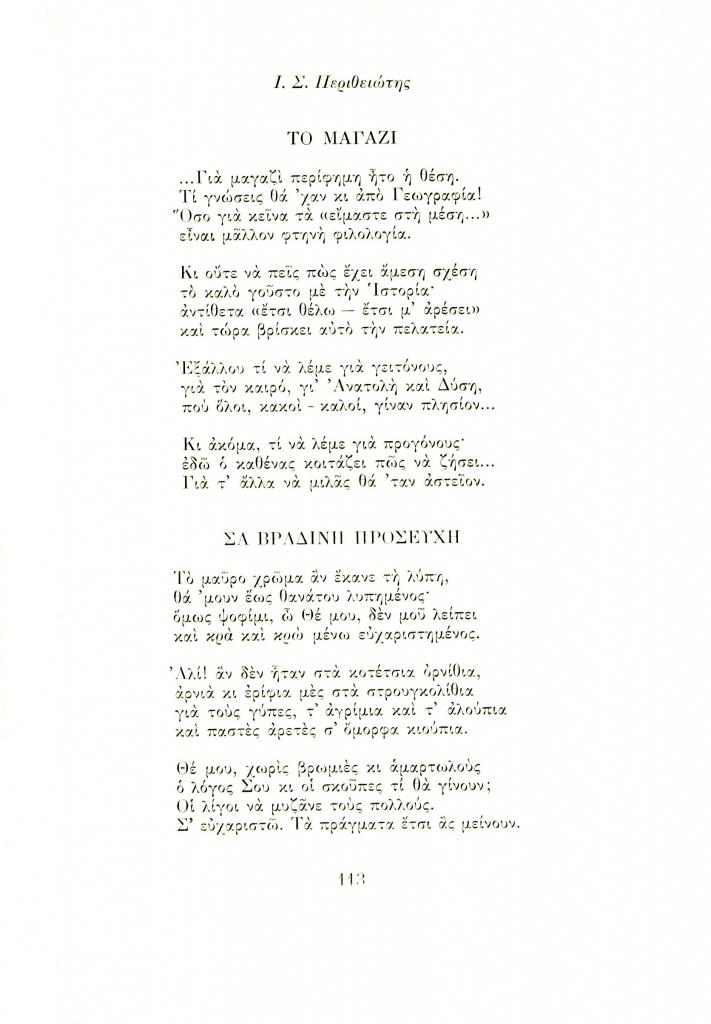 Ι. Σ. Περιθειώτης
ΤΟ ΜΑΓΑΖΙ
...Γιὰ μαγαζὶ περίφημη ἦτο ἡ θέση.
Τί γνώσεις θά 'χαν κι ἀπὸ Γεωγραφία!
Ὅσο γιὰ κεῖνα τὰ «εἴμαστε στὴ μέση...»
εἶναι μᾶλλον φτηνὴ φιλολογία.
Κι οὔτε νὰ πεῖς πὼς ἔχει ἄμεση σχέση
τὸ καλὸ γοῦστο μὲ τὴν Ἱστορία·
ἀντίθετα «ἔτσι θέλω — ἔτσι μ' ἀρέσει»
καὶ τώρα βρίσκει αὐτὸ τὴν πελατεία.
Ἐξάλλου τί νὰ λέμε γιὰ γειτόνους,
γιὰ τὸν καιρό, γι' Ἀνατολὴ καὶ Δύση,
ποὺ ὅλοι, κακοὶ - καλοί, γίναν πλησίον...
Κι ἀκόμα, τί νὰ λέμε γιὰ προγόνους·
ἐδῶ ὁ καθένας κοιτάζει πῶς νὰ ζήσει...
Γιὰ τ' ἄλλα νὰ μιλᾶς θά 'ταν ἀστεῖον.
ΣΑ ΒΡΑΔΙΝΗ ΠΡΟΣΕΥΧΗ
Τὸ μαῦρο χρῶμα ἂν ἔκανε τὴ λύπη,
θά 'μουν ἕως θανάτου λυπημένος·
ὅμως ψοφίμι, ὦ Θέ μου, δὲν μοῦ λείπει
καὶ κρὰ καὶ κρὼ μένω εὐχαριστημένος.
Ἀλί! ἂν δὲν ἦταν στὰ κοτέτσια ὀρνίθια,
ἀρνιὰ κι ἐρίφια μὲς στὰ στρουγκολίθια
γιὰ τοὺς γύπες, τ' ἀγρίμια καὶ τ' ἀλούπια
καὶ παστὲς ἀρετὲς σ' ὄμορφα κιούπια.
Θέ μου, χωρὶς βρωμιὲς κι ἁμαρτωλοὺς
ὁ λόγος Σου κι οἱ σκοῦπες τί θὰ γίνουν;
Οἱ λίγοι νὰ μυζᾶνε τοὺς πολλούς.
Σ' εὐχαριστῶ. Τὰ πράγματα ἔτσι ἂς μείνουν.
113